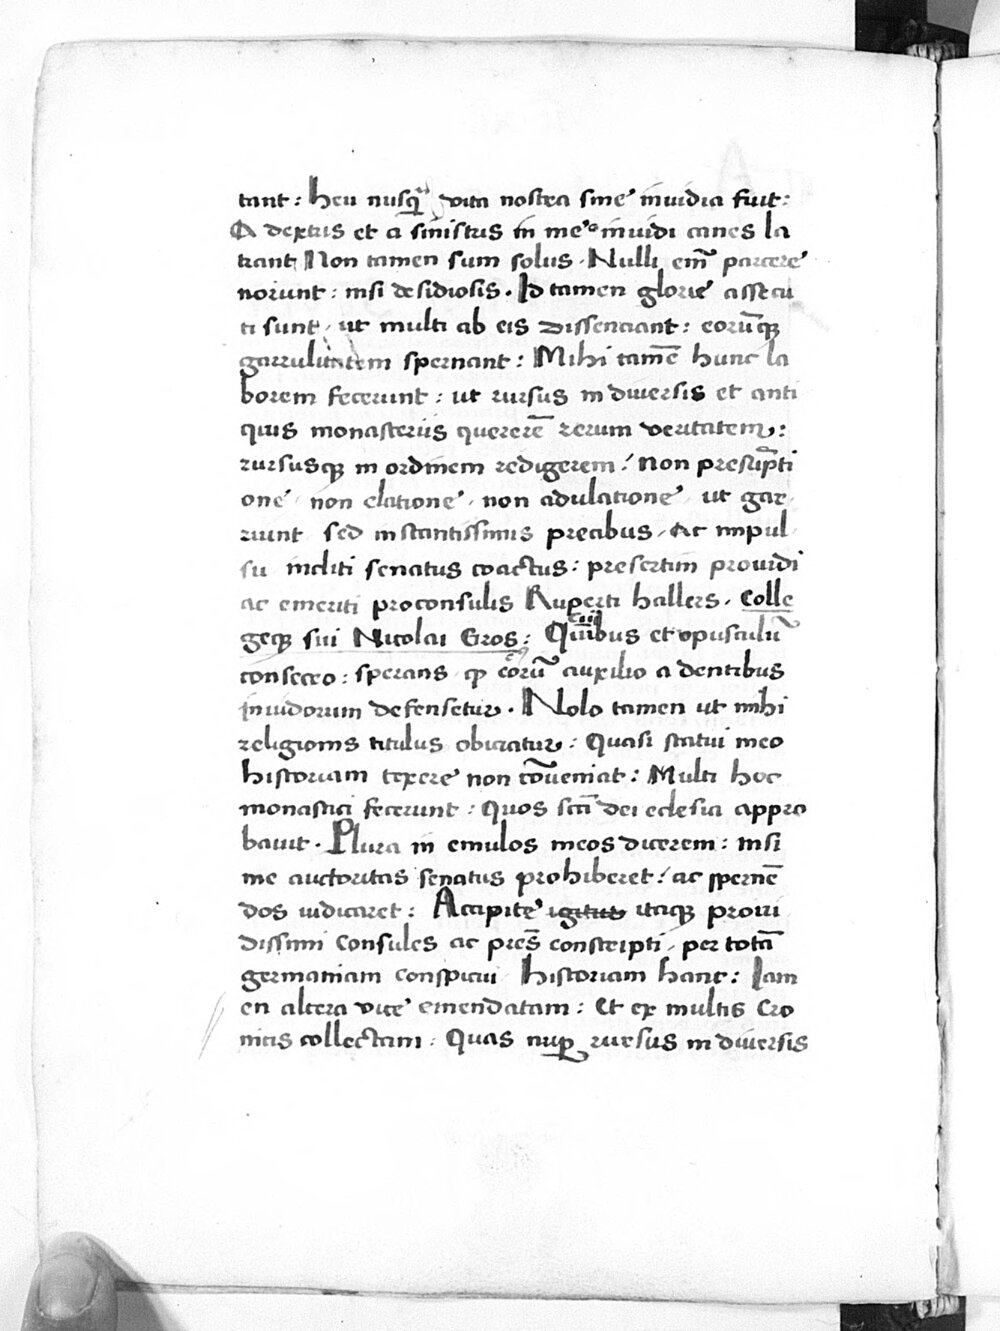 tant: heu nusq̄ᵃ vita nostra sine inuidia fuit:
A dextris et a sinistris in me inuidi canes la
trant Non tamen sum solus. Nulli em̄ parcere
norunt: nisi desidiosis. Id tamen glorie assecu
ti sunt, ut multi ab eis dissenciant: eorūqꝫ
garrulitatem spernant: Mihi tamē hunc la
borem fecerunt: ut rursus in diuersis et anti
quis monasteriis quererē rerum veritatem:
rursusqꝫ in ordinem redigerem: Non presūpti
one, non elatione, non adulatione, ut gar
riunt sed instantissimis precibus, Ac impul
su incliti senatus coactus: presertim prouidi
ac emeriti proconsulis Ruperti hallers. Colle
geqꝫ sui Nicolai Gros: Quibus et opusculū
consecro: sperans qꝫ eorū auxilio a dentibus
inuidorum defensetur. Nolo tamen ut mihi
religionis titulus obiciatur: Quasi statui meo
historiam texere non cōueniat: Multi hoc
monastici fecerunt: Quos scti dei eclesia appro
bauit. Plura in emulos meos dicerem: nisi
me auctoritas senatus prohiberet: ac spernē
dos iudicaret: Accipite igitur itaqꝫ proui
dissimi Consules ac pr̄es conscripti, per totā
germaniam conspicui historiam hanc: Iam
en altera vice emendatam: Et ex multis Cro
nicis collectam: Quas nuꝑ rursus in diuersis